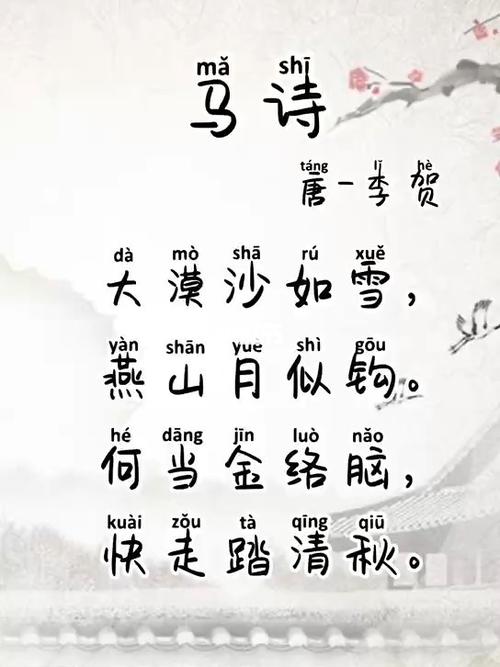 mǎ shī
马诗
táng lǐ hè
唐-李贺
dà mò shā rú xuě
大漠沙如雪，
yàn shān yuè shì gōu
燕山月似钩。
hé dāng jīn luò nǎo
何当金络脑，
kuài zǒu tà qīng qiū
快走踏清秋。